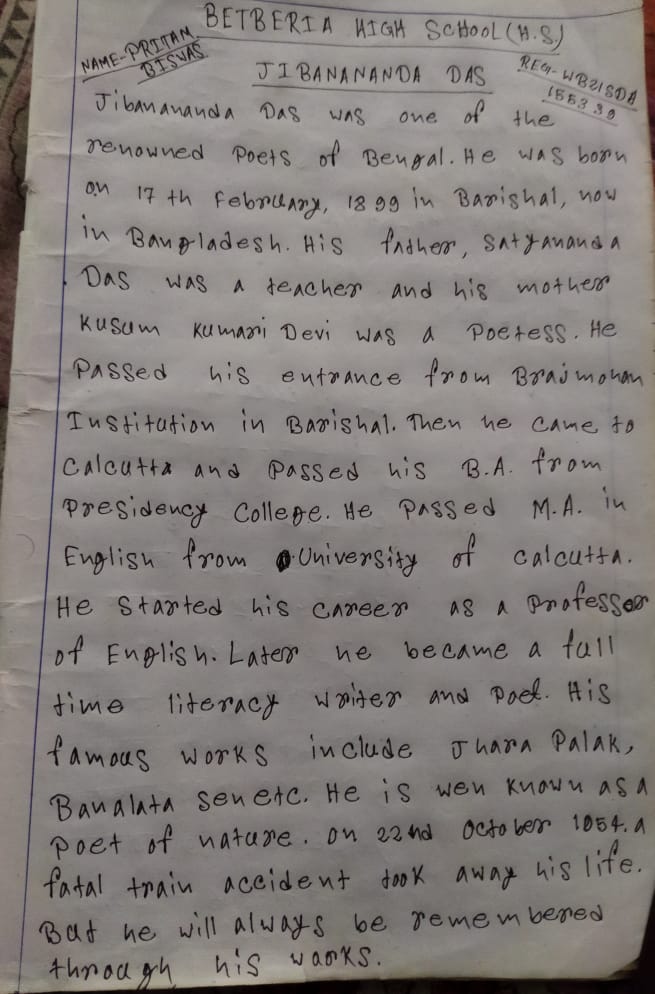 BETBERIA HIGH SCHOOL (H.S)
NAME-PRITAM
BISWAS
REG- WB21SDA
155339
JIBANANANDA DAS
Jibanananda Das was one of the
renowned Poets of Bengal. He was born
on 17 th February, 1899 in Barishal, now
in Bangladesh. His father, Satyananda
Das was a teacher and his mother
Kusum Kumari Devi was a Poetess. He
Passed his entrance from Brajmohan
Institution in Barishal. Then he came to
Calcutta and Passed his B.A. from
Presidency College. He Passed M.A. in
English from University of Calcutta.
He Started his career as a Professor
of English. Later he became a full
time literacy writer and Poet. His
famous works include Jhara Palak,
Banalata Sen etc. He is well known as a
Poet of nature. On 22nd October 1954. a
fatal train accident took away his life.
But he will always be remembered
through his works.